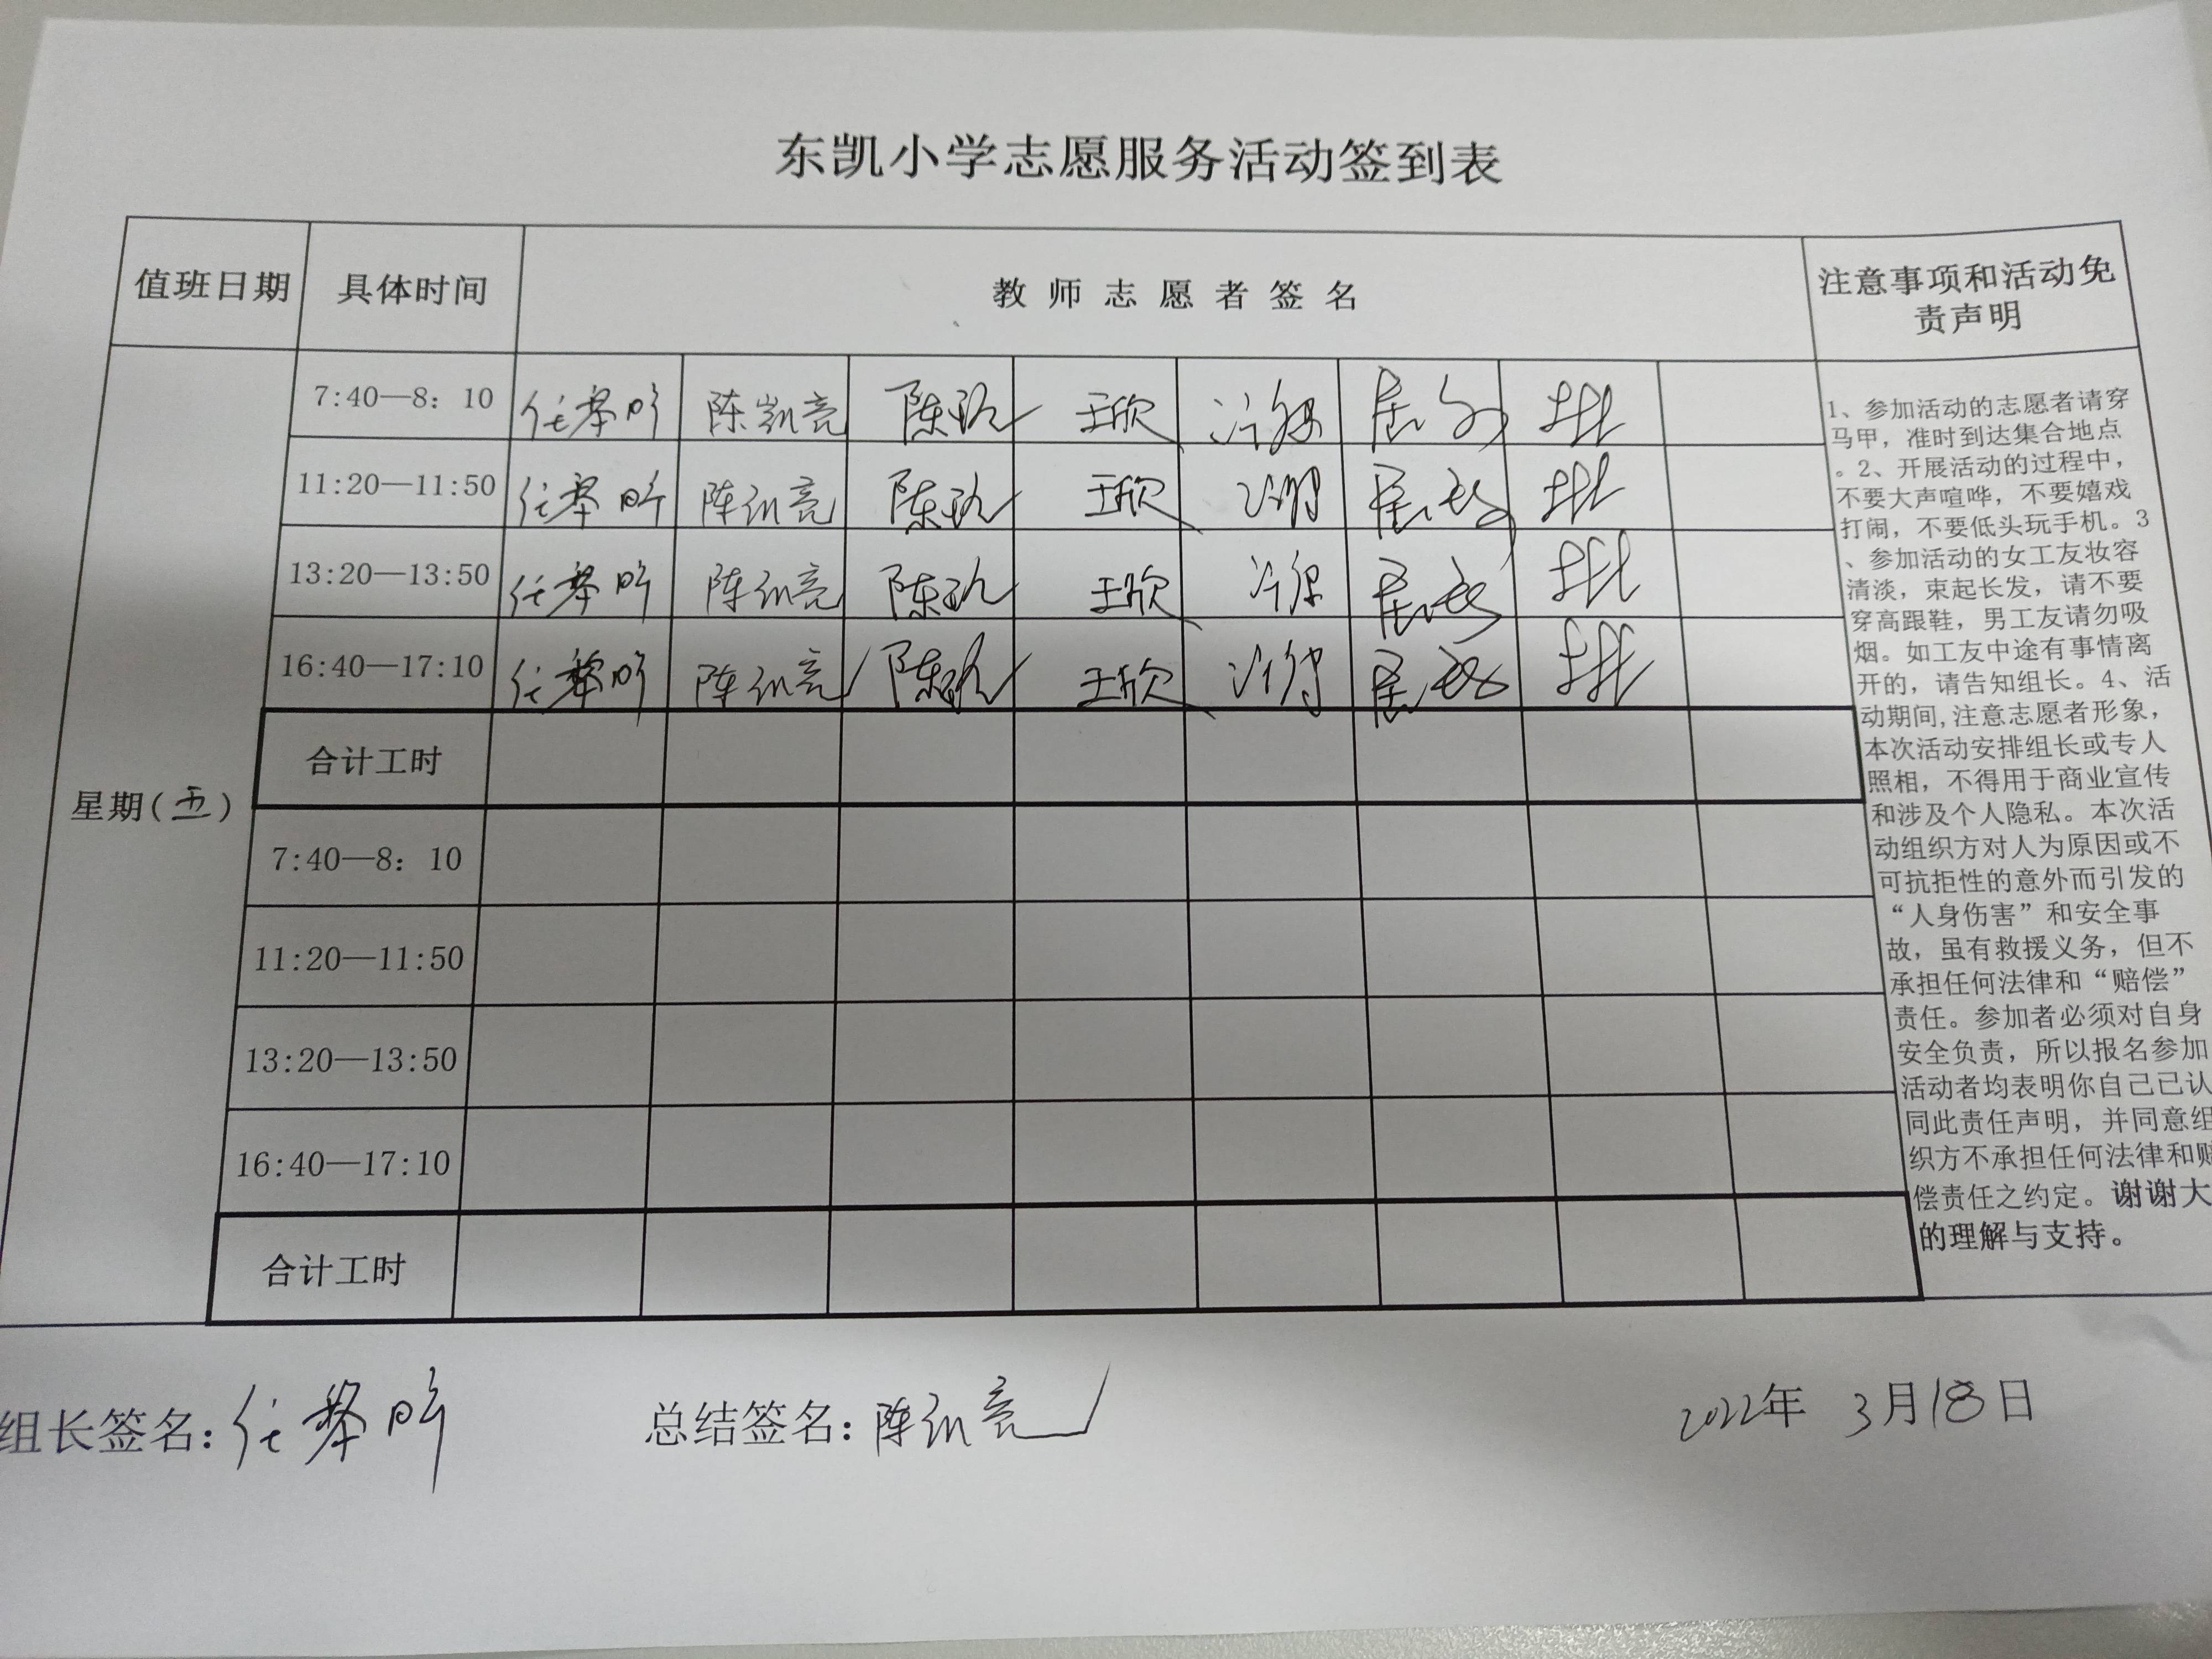 东凯小学志愿服务活动签到表
值班日期 具体时间 教师志愿者签名 注意事项和活动免
责声明
7:40—8：10 陈凯亮 王欣
11:20—11:50 王欣
13:20—13:50 王欣
16:40—17:10 王欣
合计工时
星期(五)
7:40—8：10
11:20—11:50
13:20—13:50
16:40—17:10
合计工时
1、参加活动的志愿者请穿
马甲，准时到达集合地点
。2、开展活动的过程中，
不要大声喧哗，不要嬉戏
打闹，不要低头玩手机。3
、参加活动的女工友妆容
清淡，束起长发，请不要
穿高跟鞋，男工友请勿吸
烟。如工友中途有事情离
开的，请告知组长。4、活
动期间,注意志愿者形象，
本次活动安排组长或专人
照相，不得用于商业宣传
和涉及个人隐私。本次活
动组织方对人为原因或不
可抗拒性的意外而引发的
“人身伤害”和安全事
故，虽有救援义务，但不
承担任何法律和“赔偿”
责任。参加者必须对自身
安全负责，所以报名参加
活动者均表明你自己已认
同此责任声明，并同意组
织方不承担任何法律和赔
偿责任之约定。谢谢大
的理解与支持。
组长签名: 总结签名: 2022年 3月18日